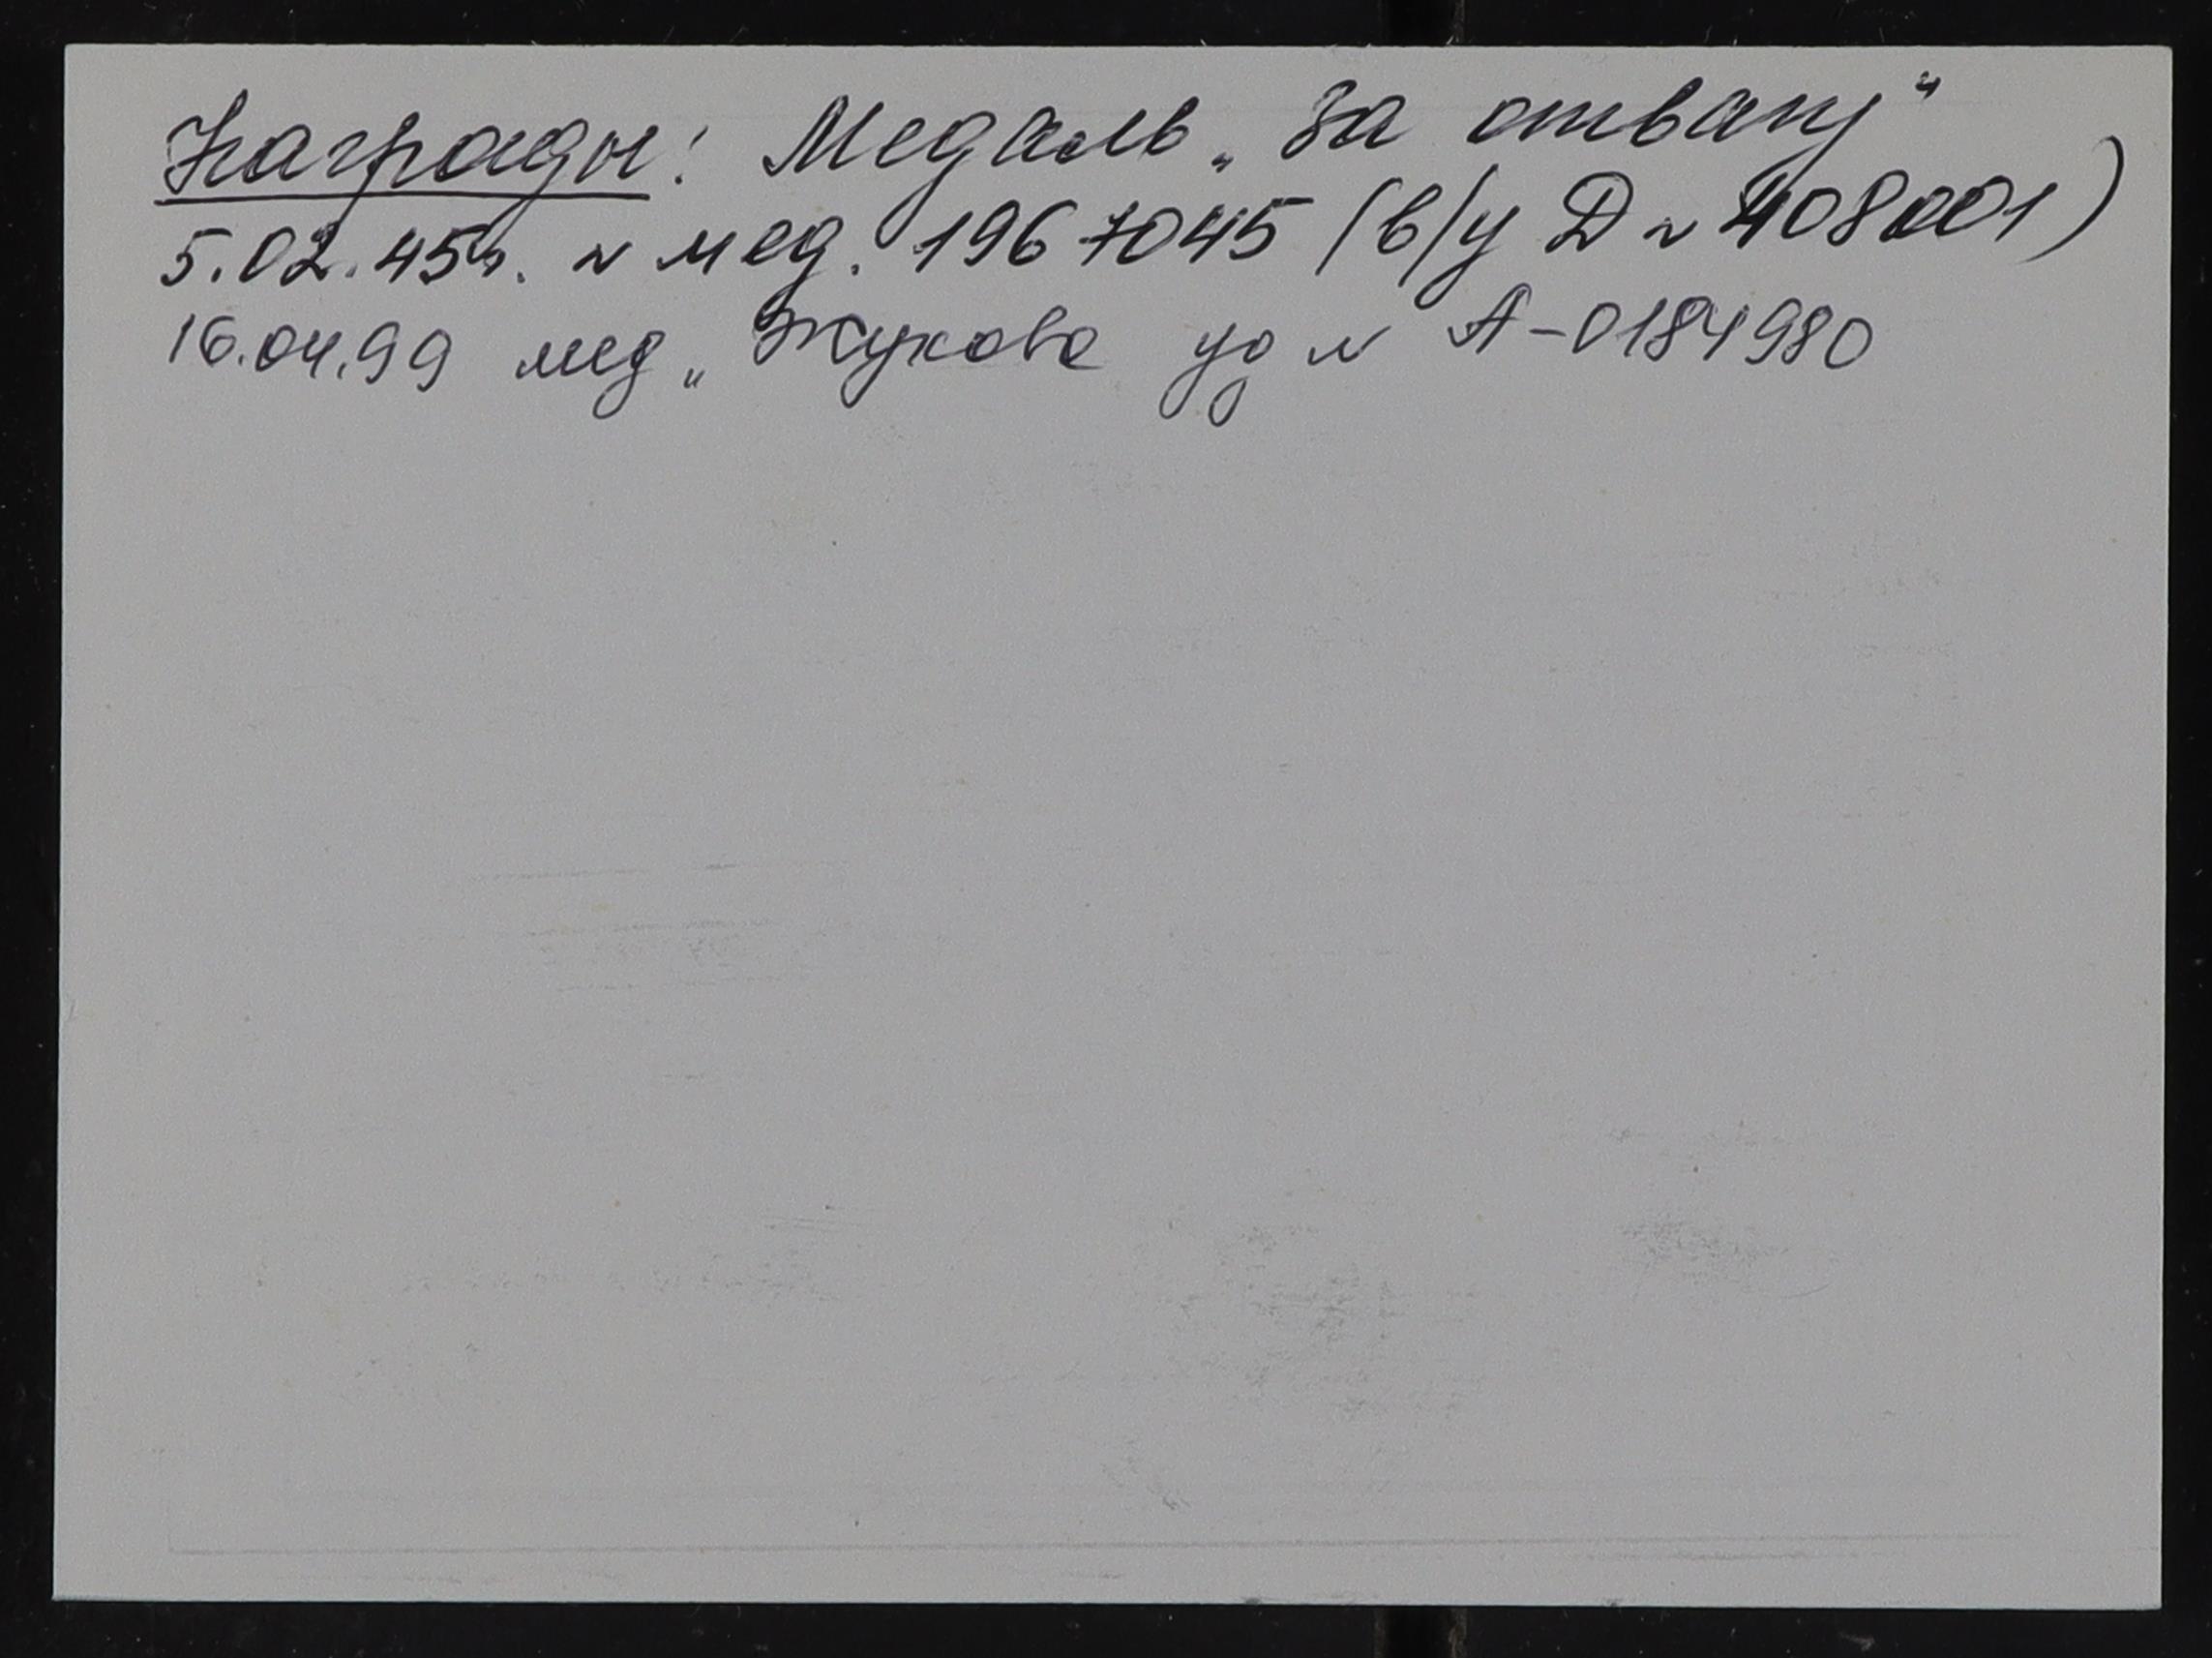 Награды: Медаль „За отвагу“
5.02.45г. N мед. 1967045 (в/у Д N 408001)
16.04.99 мед „Жукова уд N А-0184980